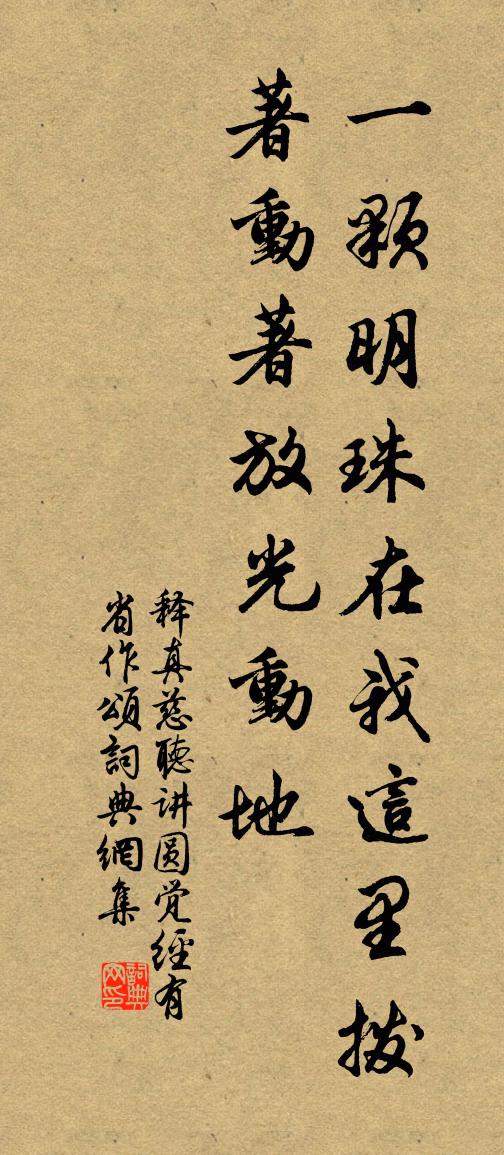 一顆明珠在我這里拨
著動著放光動地
释真慈聽讲圆觉經有
省作頌詞典網集
詞典网印